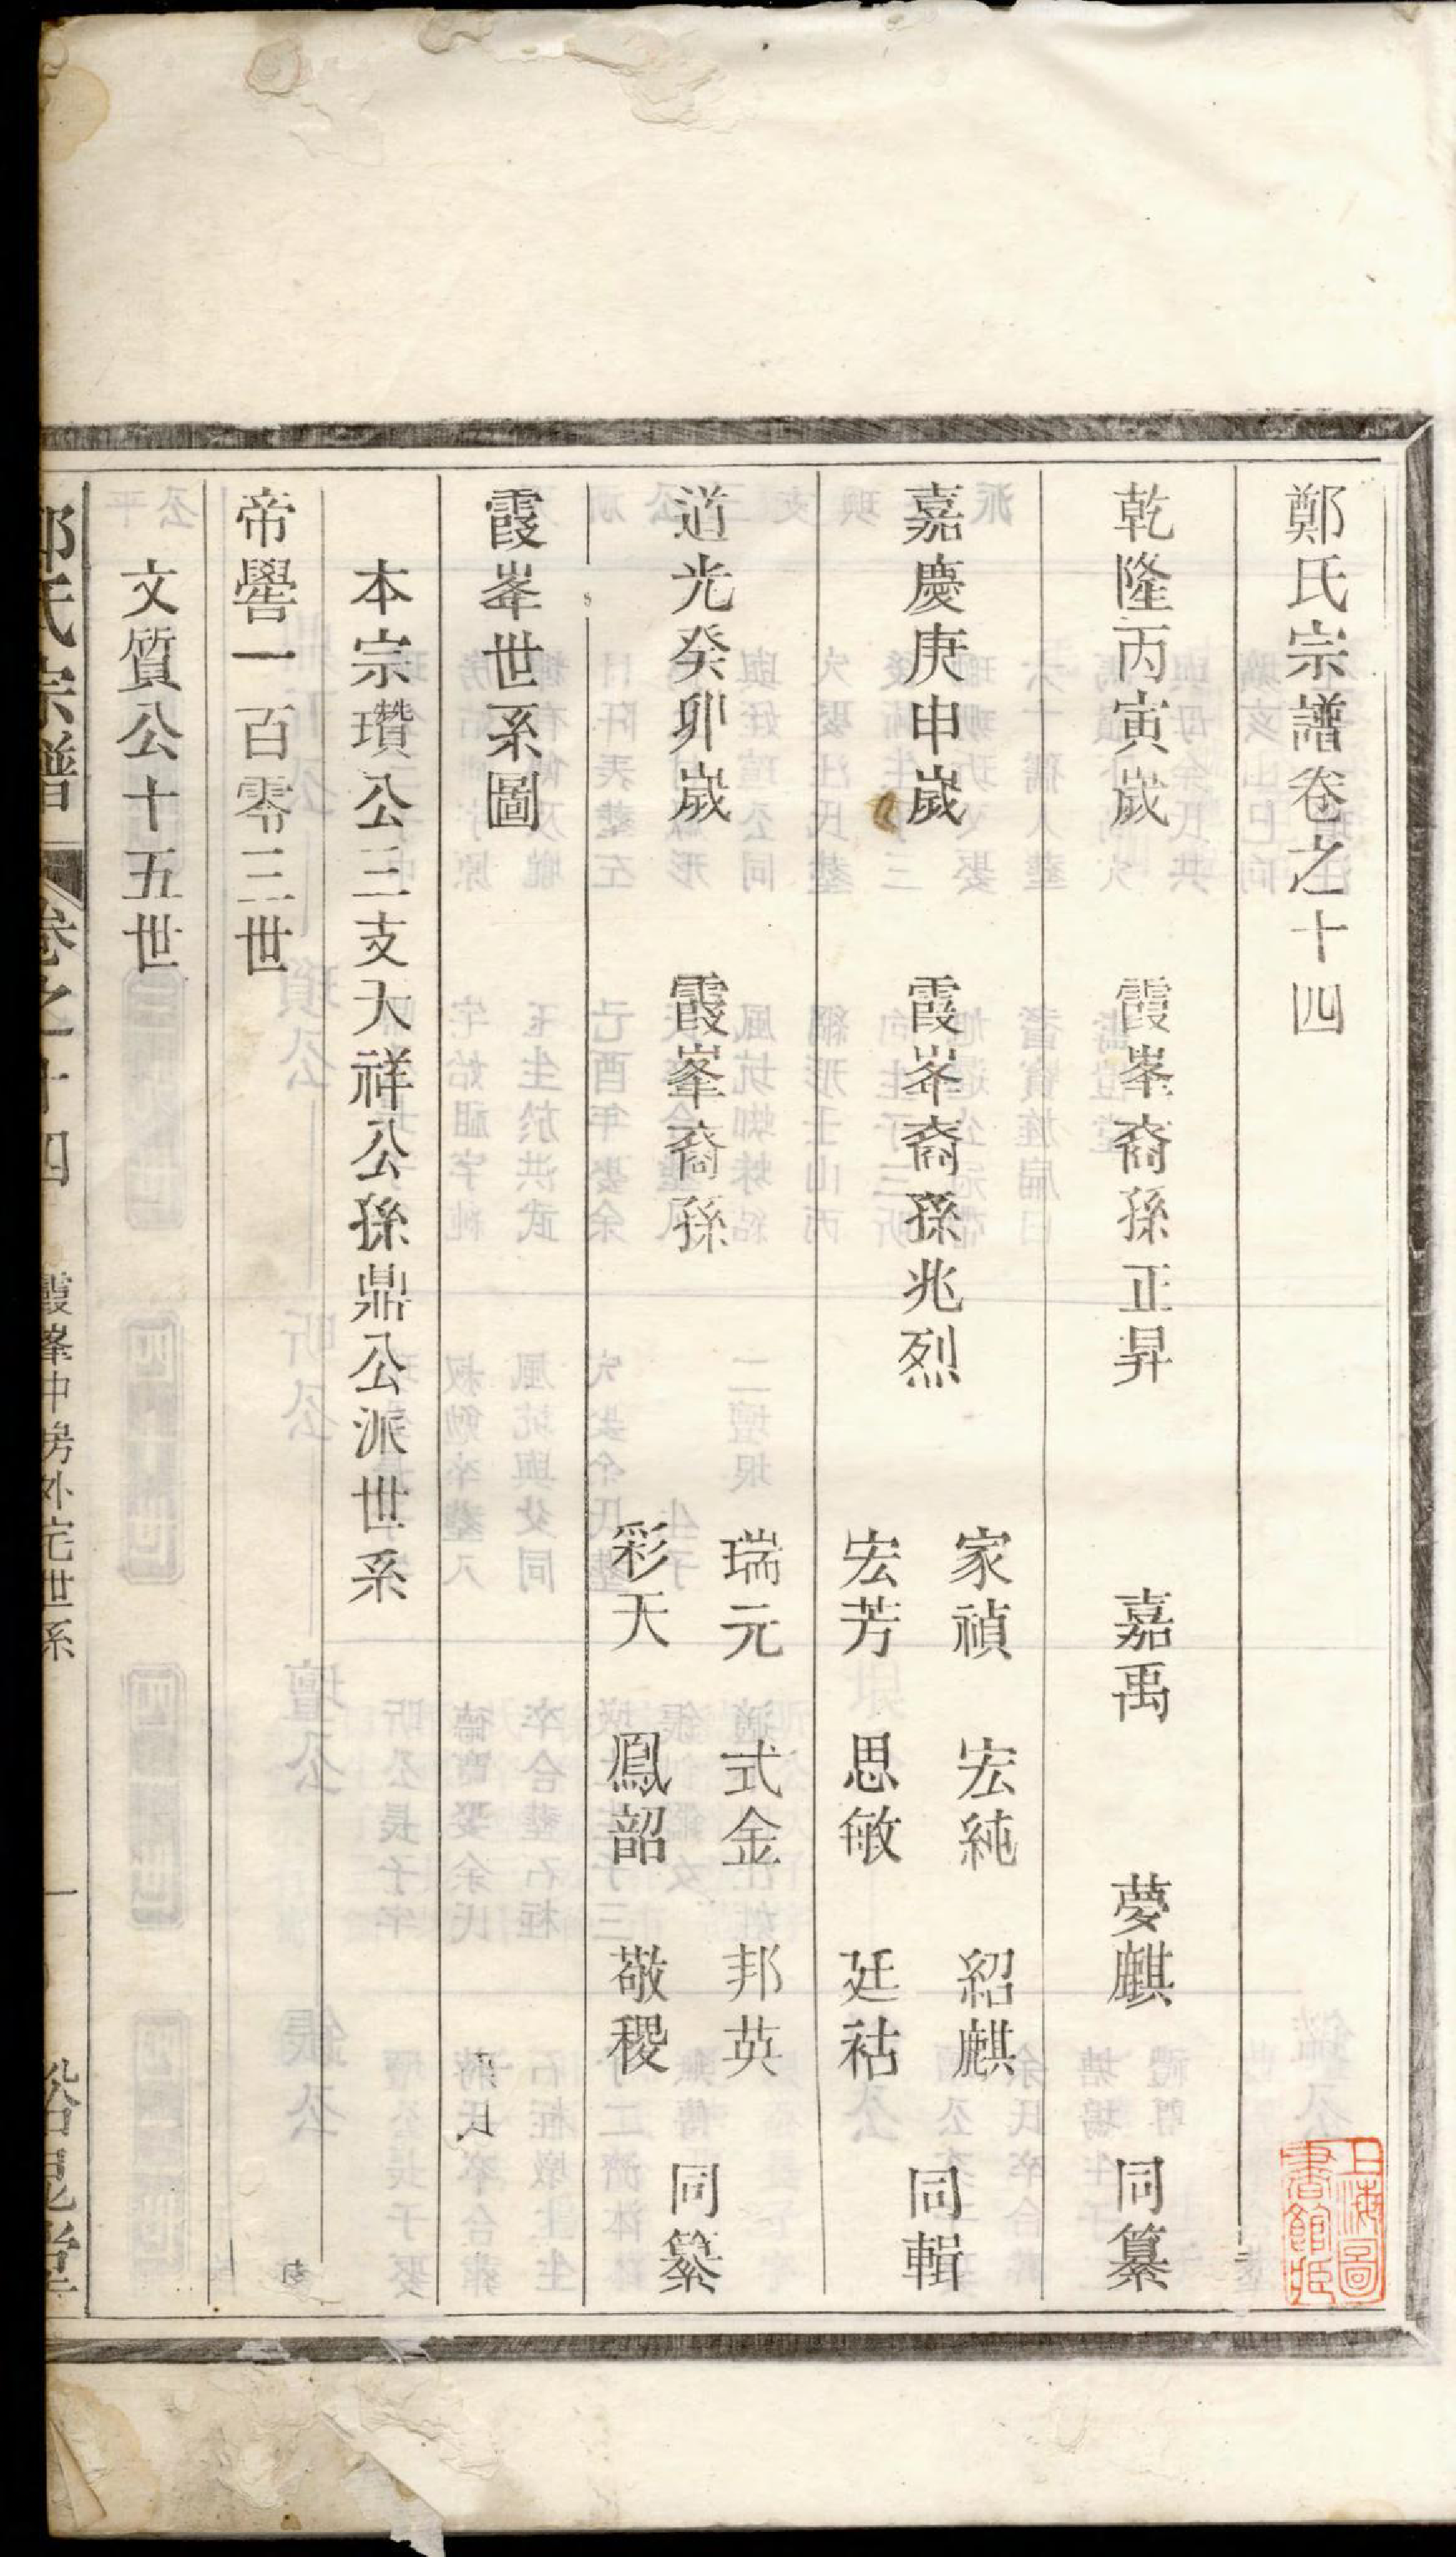 鄭氏宗譜卷之十四
乾隆丙寅歲 霞峯裔孫正昇 嘉禹 夢麒 同纂
嘉慶庚申歲 霞峯裔孫兆烈 家禎 宏純 紹麒
宏芳 思敏 廷祜 同輯
道光癸卯歲 霞峯裔孫 瑞元 式金 邦英
彩天 鳳韶 敬稷 同纂
霞峯世系圖
本宗瓚公三支大祥公孫鼎公派世系
帝嚳一百零三世
文質公十五世
鄭氏宗譜 卷之十四 霞峯中房外宅世系 一
上海圖書館藏